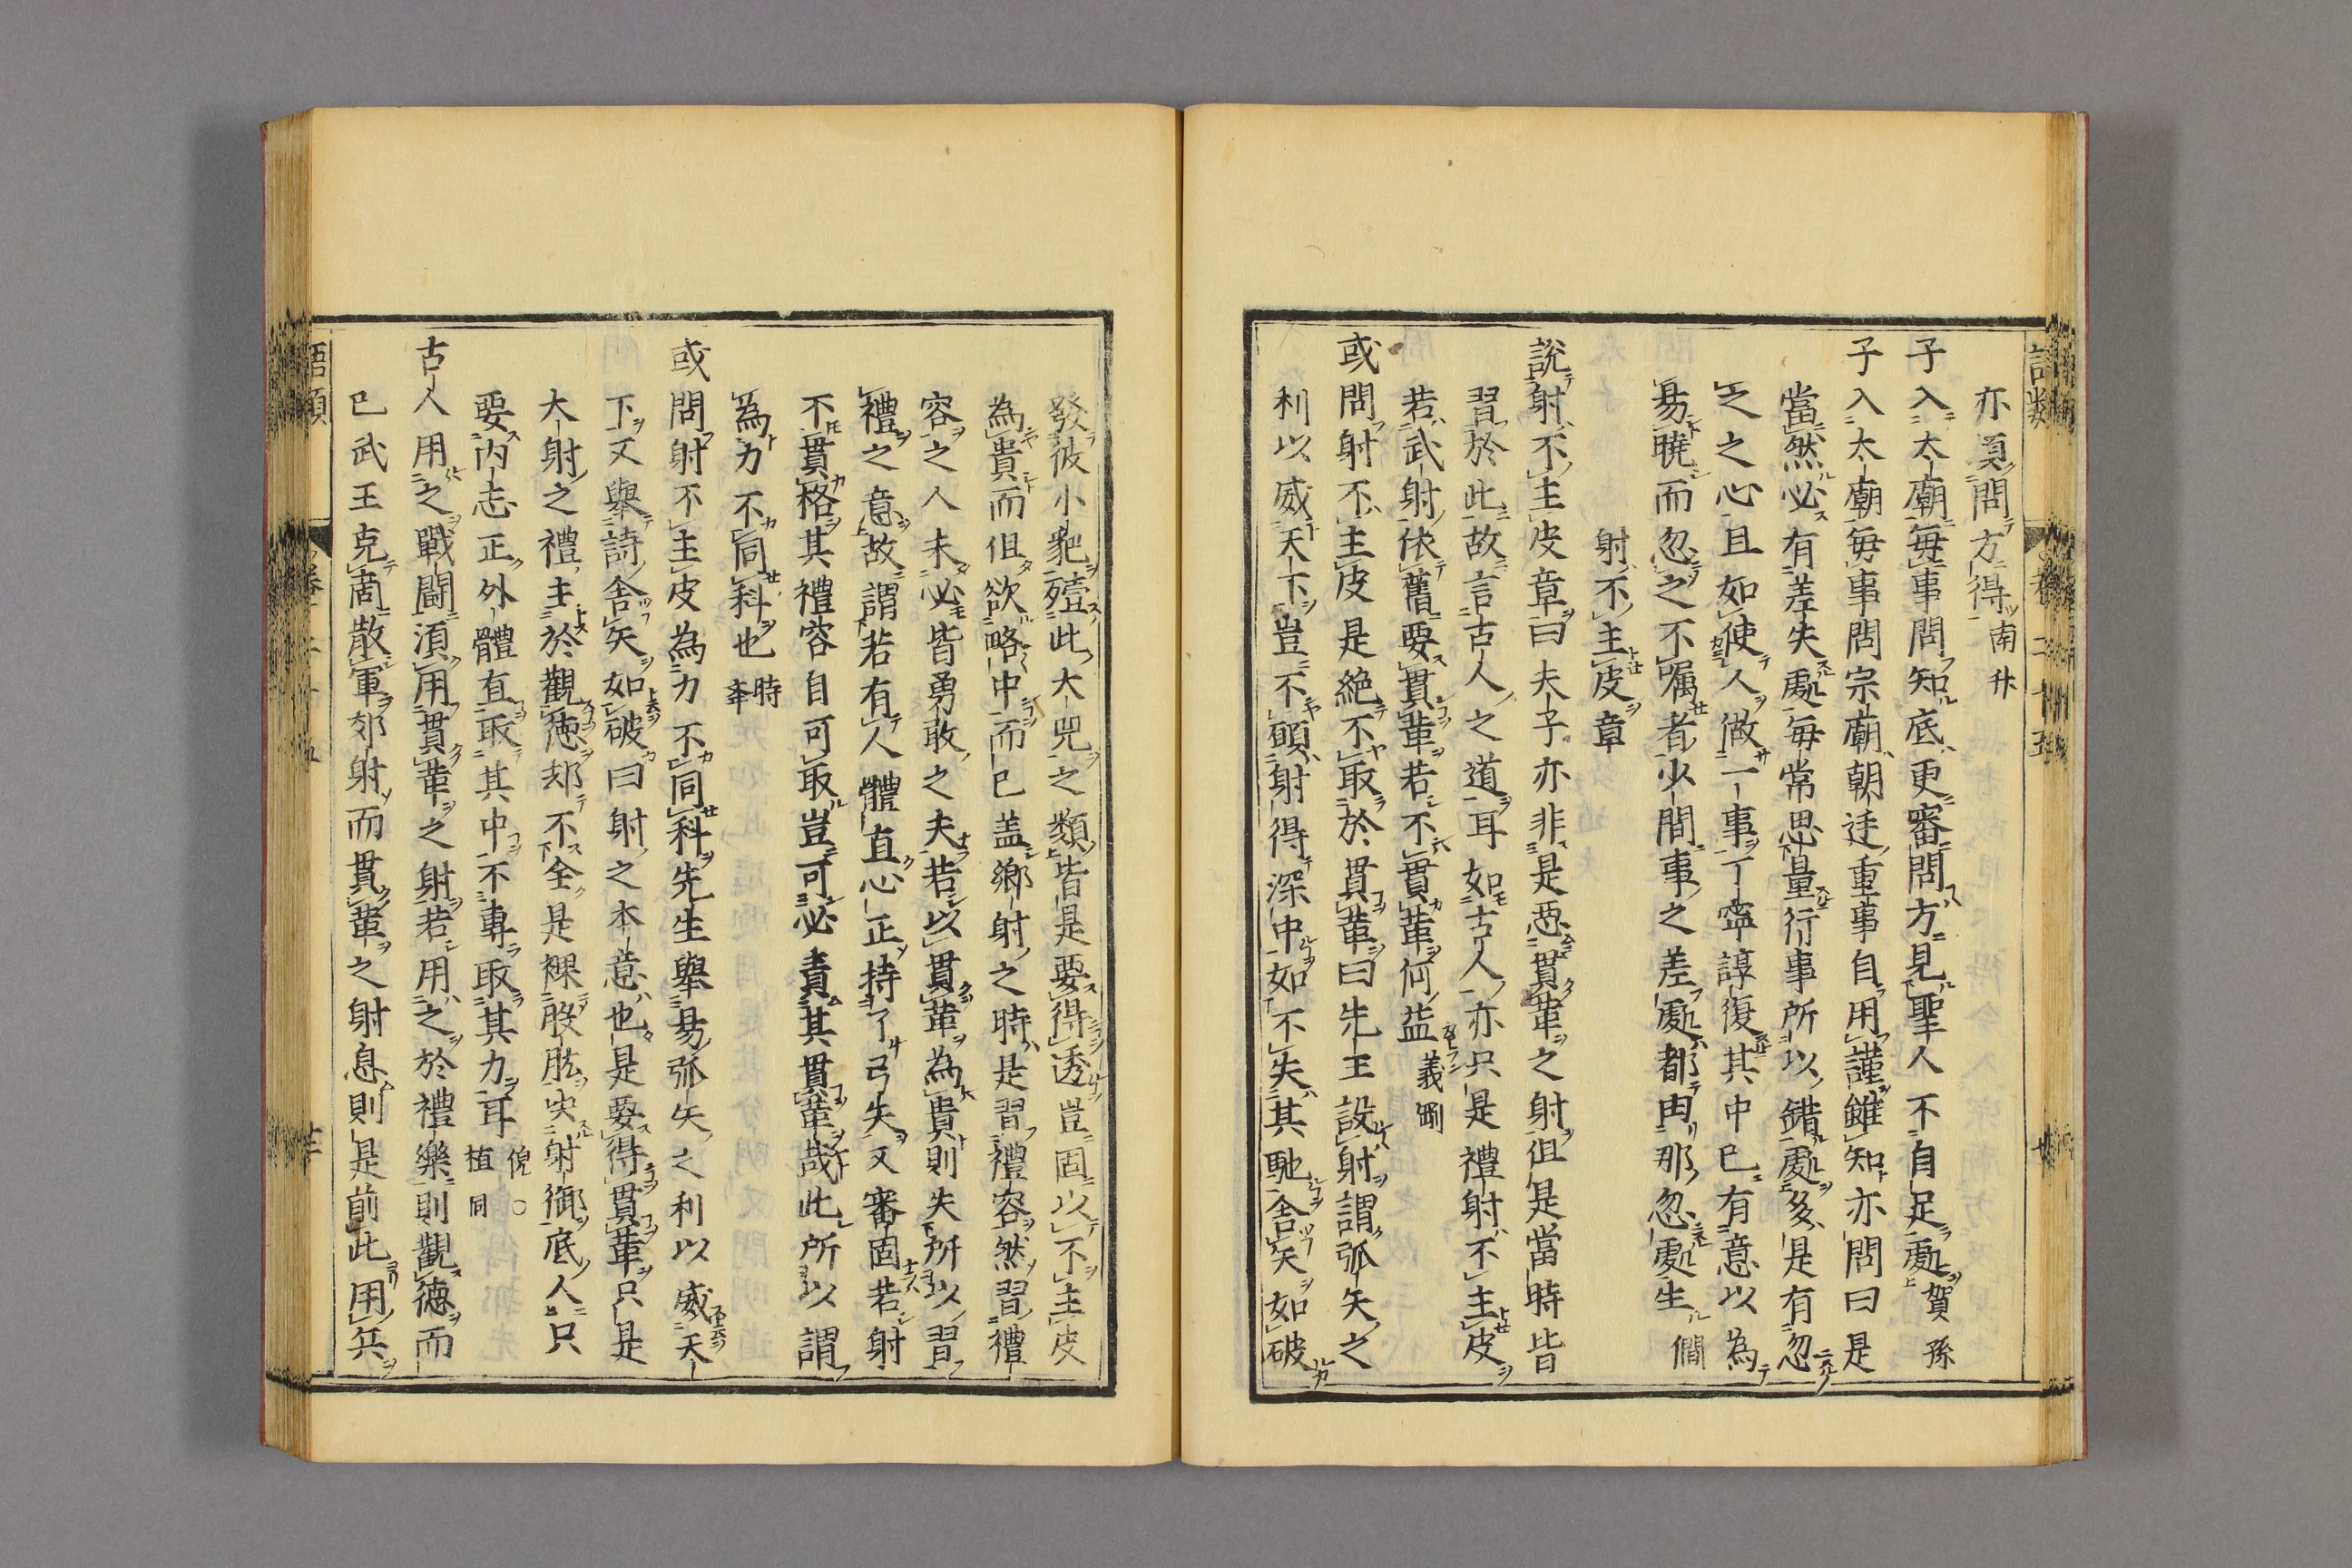 亦須問方得南升
子入太廟每事問知底更審問方見聖人不自足處賀孫
子入太廟每事問宗廟朝廷重事自用謹雖知亦問曰是
當然必有差失處每常思量行事所以錯處多是有忽
之之心且如使人做一事丁寧諄復其中已有意以為
易曉而忽之不囑者少間事之差處都由那忽處生僩
射不主皮章
說射不主皮章曰夫子亦非是惡貫革之射但是當時皆
習於此故言古人之道耳如古人亦只是禮射不主皮
若武射依舊要貫革若不貫革何益義剛
或問射不主皮是絶不取於貫革曰先王設射謂弧矢之
利以威天下豈不願射得深中如不失其馳舍矢如破
發彼小豝殪此大兕之類皆是要得透豈固以不主皮
為貴而但欲略中而已盖鄉射之時是習禮容然習禮
容之人未必皆勇敢之夫若以貫革為貴則失所以習
禮之意故謂若有人體直心正持了弓矢又審固若射
不貫革其禮容自可取豈可必責其貫革哉此所以謂
為力不同科也時舉
或問射不主皮為力不同科先生舉易弧矢之利以威天
下又舉詩舍矢如破曰射之本意也是要得貫革只是
大射之禮主於觀德却不全是裸股肱决射御底人只
要内志正外體直取其中不專取其力耳倪○植同
古人用之戰鬪須用貫革之射若用之於禮樂則觀德而
已武王克商散軍郊射而貫革之射息則是前此用兵
語類
卷二十五